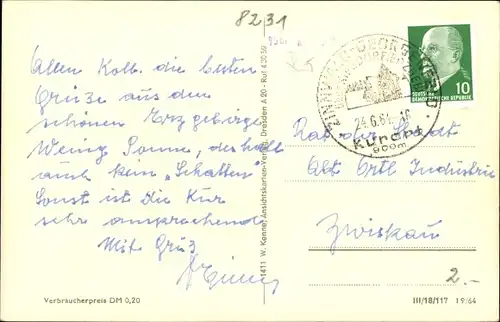 8231
Allen Koll. die besten
Grüße aus dem
schönen Erzgebirge
Wenig Sonne, deshalb
auch kein „Schatten
Sonst ist die Kur
sehr ansprechend
Mit Gruß
Verbraucherpreis DM 0,20
1411 W. Kenner, Ansichtskarten-Verlag, Dresden A 20 · Ruf 4 20 59
24.6.64
Kurort
900m
10
DEUTSCHE
DEMOKRATISCHE REPUBLIK
Rat der Stadt
Abt Örtl Industrie
Zwickau
2.-
III/18/117 19/64